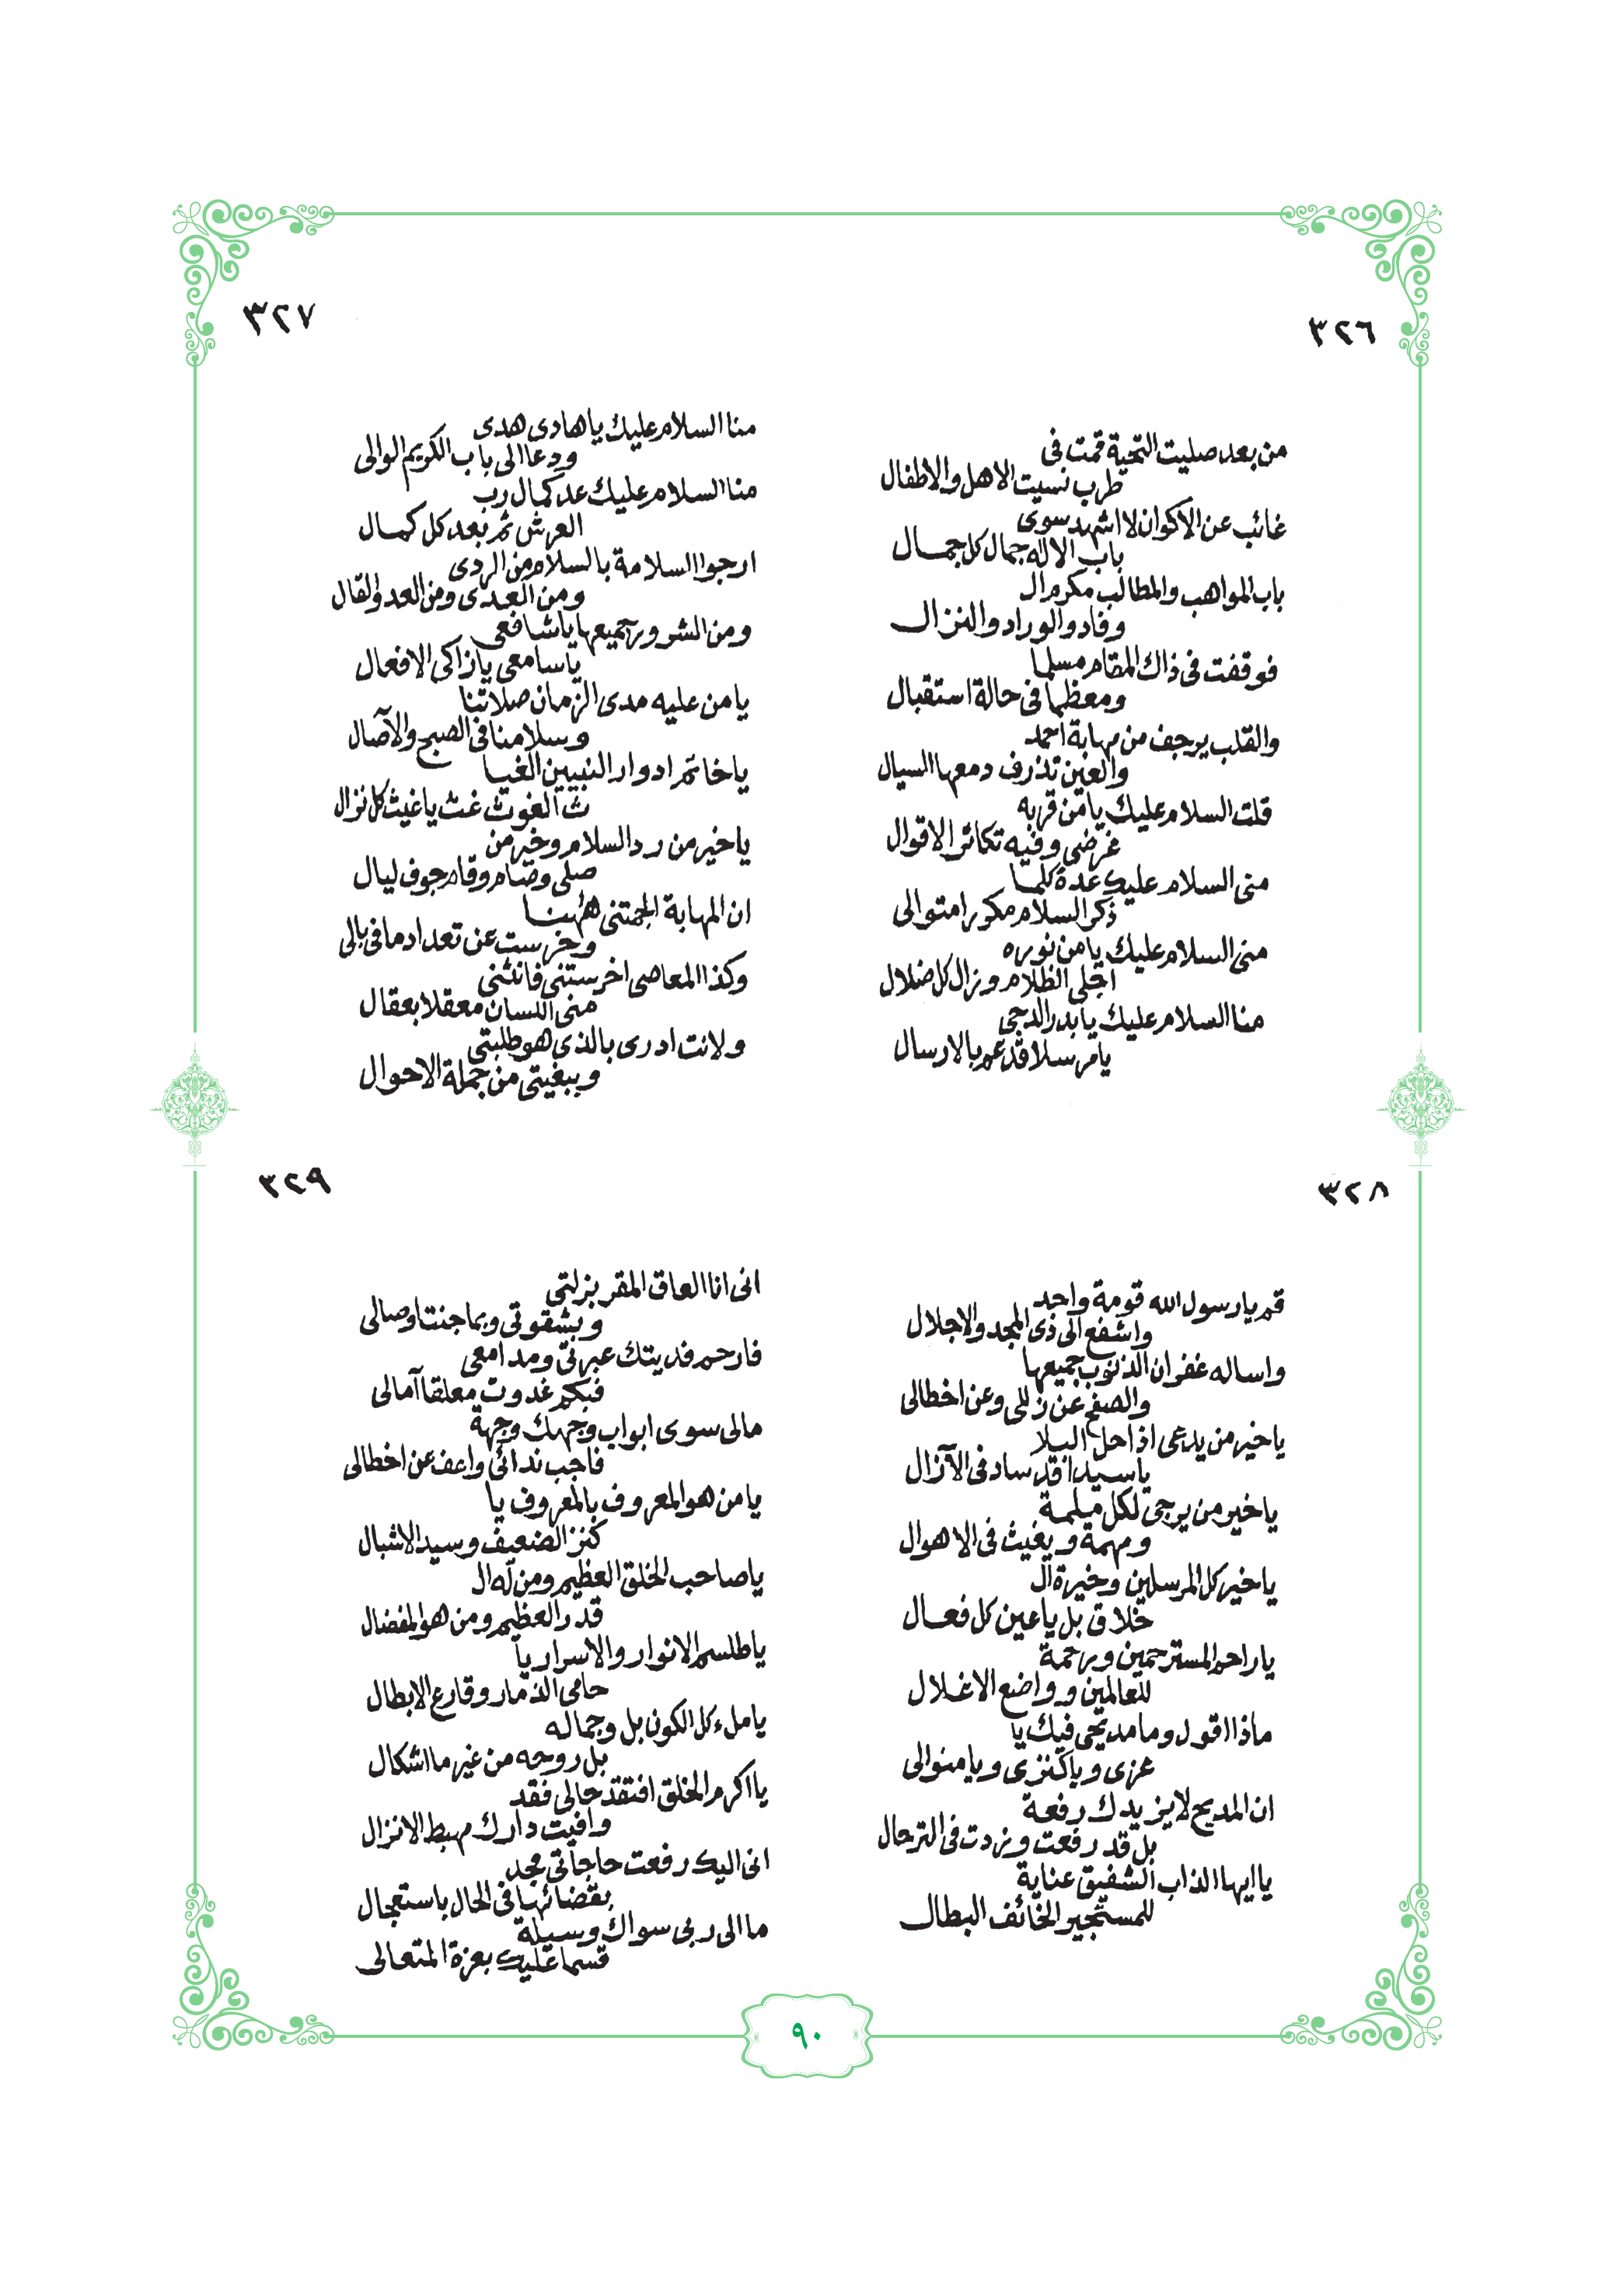 ٣٢٦
من بعد صليت التحية قمت فى
طرب نسيت الاهل والاطفال
غائب عن الأكوان لا اشهد سوى
باب الاله جمال كل جمال
باب المواهب والمطالب مكرم ال
وفاد والوراد والنزال
فوقفت فى ذاك المقام مسلما
ومعظما فى حالة استقبال
والقلب يرجف من مهابة احمد
والعين تذرف دمعها السيال
قلت السلام عليك يا من قربه
غرضى وفيه تكاثر الاقوال
منى السلام عليك عدة كلما
ذكر السلام مكررا متوالى
منى السلام عليك يا من نوره
اجلى الظلام وزال كل ضلال
منا السلام عليك يا بدر الدجى
يا مرسلا قد عم بالارسال
٣٢٧
منا السلام عليك يا هادى هدى
ودعا الى باب الكريم الوالى
منا السلام عليك عد كمال رب
العرش ثم بعد كل كمال
ارجوا السلامة بالسلام من الردى
ومن العدى ومن العدو القال
ومن الشرور جميعها يا شافعى
يا سامعى يا زاكى الافعال
يا من عليه مدى الزمان صلاتنا
وسلامنا فى الصبح والآصال
يا خاتم ادوار النبيين الغيا
ث الغوث غث يا غيث كل نزال
يا خير من رد السلام وخير من
صلى وصام وقام جوف ليال
ان المهابة الجمتنى ههنا
وخرست عن تعداد ما فى بالى
وكذا المعاصى اخرستنى فانثنى
منى اللسان معقلا بعقال
ولانت ادرى بالذى هو طلبتى
وببغيتى من جملة الاحوال
٣٢٨
قم يا رسول الله قومة واجد
واشفع الى ذى المجد والاجلال
واساله غفران الذنوب جميعها
والصفح عن زللى وعن اخطالى
يا خير من يدعى اذا حل البلا
يا سيدا قد ساد فى الآزال
يا خير من يرجى لكل ميلمة
ومهمة ويغيث فى الاهوال
يا خير كل المرسلين وخيرة ال
خلاق بل يا عين كل فعال
يا راحم المسترحمين ورحمة
للعالمين وواضع الاغلال
ماذا اقول وما مديحى فيك يا
عزى ويا كنزى ويا منوالى
ان المديح لا يزيدك رفعة
بل قد رفعت وزدت فى الترحال
يا ايها الذاب الشفيق عناية
للمستجير الخائف البطال
٣٢٩
انى انا العاق المقر بزلتى
وبشقوتى وبما جنت اوصالى
فارحم فديتك عبرتى ومدامعى
فبكم غدوت معلقا آمالى
مالى سوى ابواب وجهك وجهة
فاجب ندائى واعف عن اخطالى
يا من هو المعروف بالمعروف يا
كنز الضعيف وسيد الاشبال
يا صاحب الخلق العظيم ومن له ال
قدر العظيم ومن هو المفضال
يا طلسم الانوار والاسرار يا
حامى الذمار وقارع الابطال
يا ملء كل الكون بل وجماله
بل روحه من غير ما اشكال
يا اكرم الخلق افتقد حالى فقد
وافيت دارك مهبط الانزال
انى اليك رفعت حاجاتى فجد
بقضائها فى الحال باستعجال
ما الى ربى سواك وسيلة
قسما عليك بعزة المتعالى
٩٠